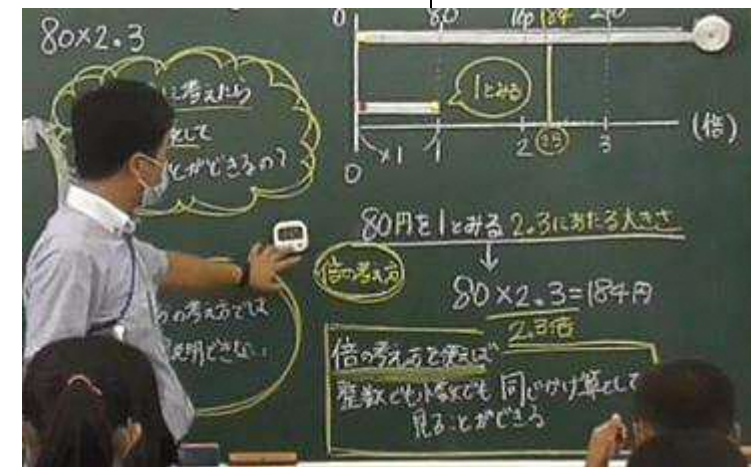 80×2.3
に考えたら
として
とができるの?
の考え方では
説明できない
0 80 160 184 240
1とみる
0 ×1 1 2 2.3 3 (倍)
80円を1とみる 2.3にあたる大きさ
↓
倍の考え方
80×2.3=184円
2.3倍
倍の考え方を使えば
整数でも小数でも 同じかけ算として
見ることができる